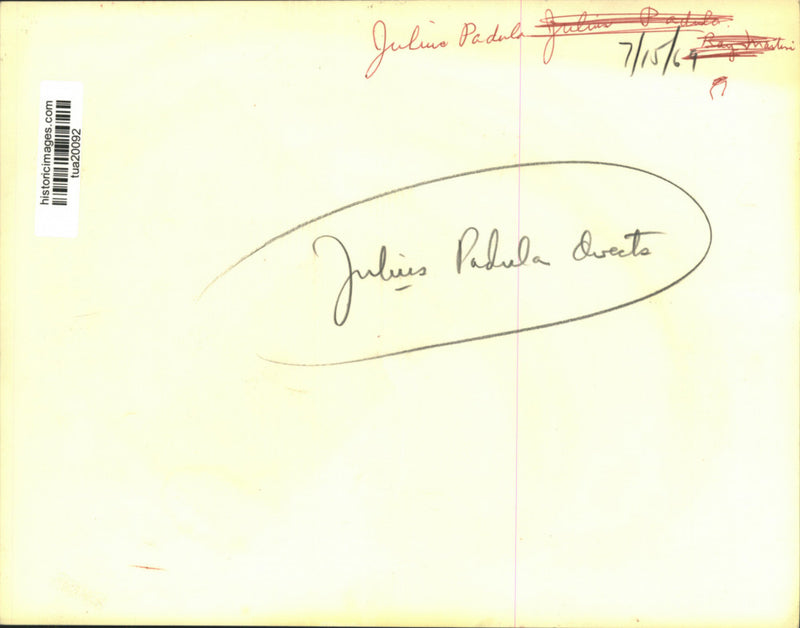 Julius Padula Julius Padula
7/15/69 Ray Martin
historicimages.com
tua20092
Julius Padula Quects